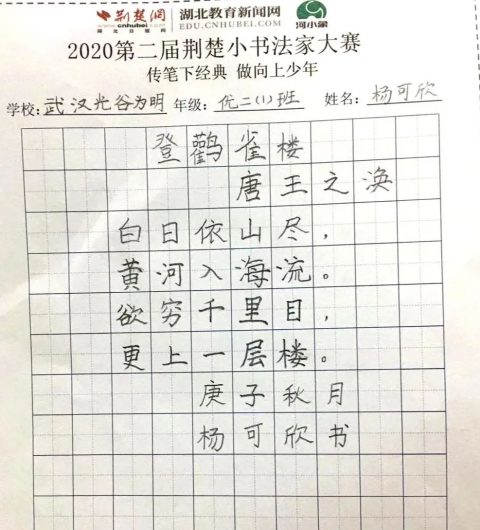 荆楚网 湖北教育新闻网 河小象
www.cnhubei.com EDU.CNHUBEI.COM
湖北日报网
2020第二届荆楚小书法家大赛
传笔下经典 做向上少年
学校:武汉光谷为明 年级:优二(1)班 姓名:杨可欣
登鹳雀楼
唐王之涣
白日依山尽,
黄河入海流。
欲穷千里目,
更上一层楼。
庚子秋月
杨可欣书